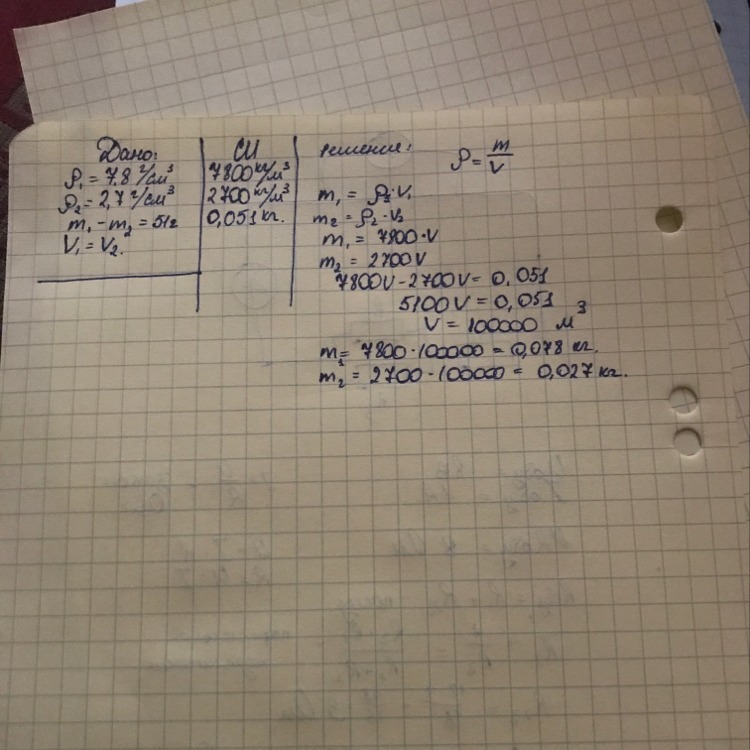 Дано:
ρ₁ = 7,8 г/см³
ρ₂ = 2,7 г/см³
m₁ - m₂ = 51г
V₁ = V₂.
СИ
7800 кг/м³
2700 кг/м³
0,051 кг.
решение:
ρ = m/V
m₁ = ρ₁·V₁
m₂ = ρ₂·V₂
m₁ = 7800·V
m₂ = 2700V
7800V - 2700V = 0,051
5100V = 0,051
V = 100000 м³
m₁ = 7800·100000 = 0,078 кг.
m₂ = 2700·100000 = 0,027 кг.